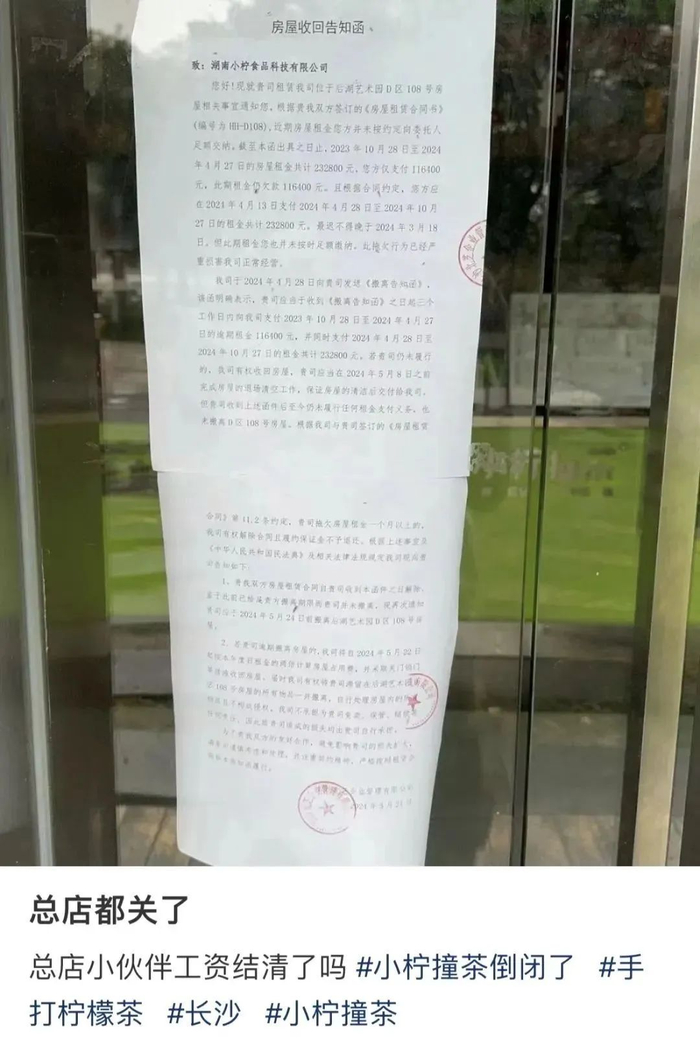 房屋收回告知函
致：湖南小柠食品科技有限公司
您好！现就贵司租赁我司位于后湖艺术园D区108号房
屋相关事宜通知您。根据贵我双方签订的《房屋租赁合同书》
（编号为HH-D108），近期房屋租金您方并未按约定向委托人
足额交纳。截至本函出具之日止，2023年10月28日至2024
年4月27日的房屋租金共计232800元，您方仅支付116400
元，此期租金仍欠款116400元。且根据合同约定，您方应
在2024年4月13日支付2024年4月28日至2024年10月
27日的租金共计232800元，最迟不得晚于2024年3月18
日，但此期租金您也并未按时足额缴纳。此拖欠行为已经严
重损害我司正常经营。
我司于2024年4月28日向贵司发送《搬离告知函》，
该函明确表示，贵司应当于收到《搬离告知函》之日起三个
工作日内向我司支付2023年10月28日至2024年4月27
日的逾期租金116400元，并同时支付2024年4月28日至
2024年10月27日的租金共计232800元，若贵司仍未履行
的，我司有权收回房屋，贵司应当在2024年5月8日之前
完成房屋的退场清空工作，保证房屋的清洁后交付给我司，
但贵司收到上述函件后至今仍未履行任何租金支付义务，也
未搬离D区108号房屋。根据我司与贵司签订的《房屋租赁
合同》第11.2条约定，贵司拖欠房屋租金一个月以上的，
我司有权解除合同且履约保证金不予退还。根据上述事实及
《中华人民共和国民法典》及相关法律法规规定我司现向贵
司告知如下：
1、贵我双方房屋租赁合同自贵司收到本函件之日解除，
鉴于此前已给足贵方搬离期限而贵司并未搬离，现再次通知
贵司应于2024年5月24日前搬离后湖艺术园D区108号房
屋。
2、若贵司逾期搬离房屋的，我司将自2024年5月22日
企业管理有限公司
总店都关了
总店小伙伴工资结清了吗 #小柠撞茶倒闭了 #手
打柠檬茶 #长沙 #小柠撞茶